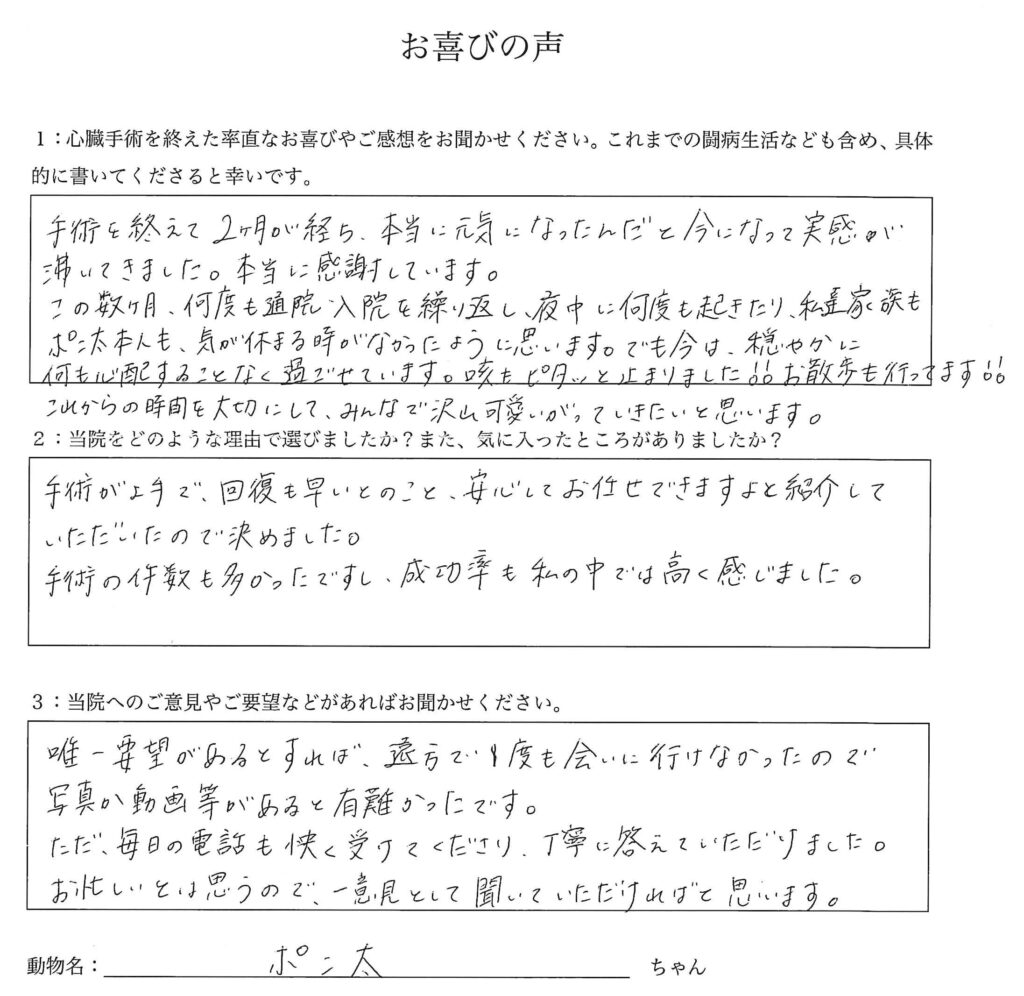 お喜びの声
1：心臓手術を終えた率直なお喜びやご感想をお聞かせください。これまでの闘病生活なども含め、具体
的に書いてくださると幸いです。
手術を終えて2ヶ月が経ち、本当に元気になったんだと今になって実感が
沸いてきました。本当に感謝しています。
この数ヶ月、何度も通院、入院を繰り返し、夜中に何度も起きたり、私達家族も
ポン太本人も、気が休まる時がなかったように思います。でも今は、穏やかに
何も心配することなく過ごせています。咳もピタッと止まりました!!お散歩も行ってます!!
これからの時間を大切にして、みんなで沢山可愛いがっていきたいと思います。
2：当院をどのような理由で選びましたか？また、気に入ったところがありましたか？
手術が上手で、回復も早いとのこと、安心してお任せできますよと紹介して
いただいたので決めました。
手術の件数も多かったですし、成功率も私の中では高く感じました。
3：当院へのご意見やご要望などがあればお聞かせください。
唯一要望があるとすれば、遠方で1度も会いに行けなかったので
写真か動画等があると有難かったです。
ただ、毎日の電話も快く受けてくださり、丁寧に答えていただけました。
お忙しいとは思うので、一意見として聞いていただければと思います。
動物名：ポン太 ちゃん